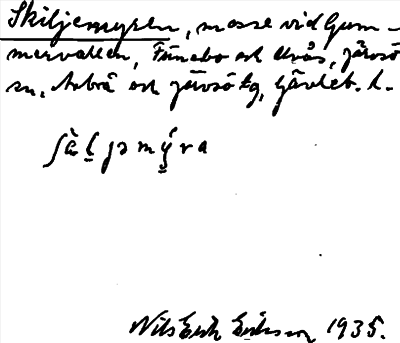 Skiljemyren, mosse vid Gum-
mervallen, Fünebo och Ulvås, Järvsö
sn, Arbrå och Järvsö tg, Gävleb. l.
ʃàl̥jəmýra
Nils Erik Eriksson 1935.